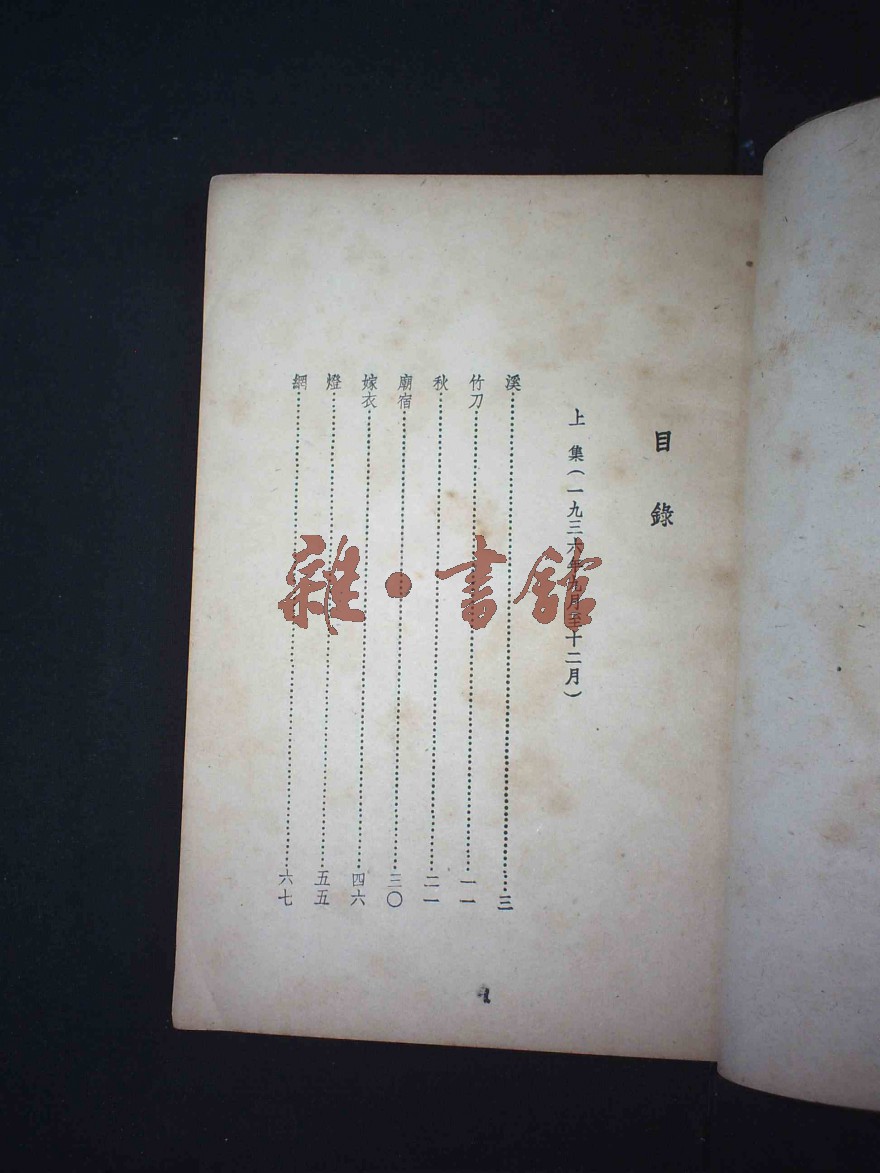 目錄
上集(一九三六年九月至十二月)
溪……三
竹刀……一一
秋……二一
廟宿……三〇
嫁衣……四六
燈……五五
網……六七
1
雜·書館